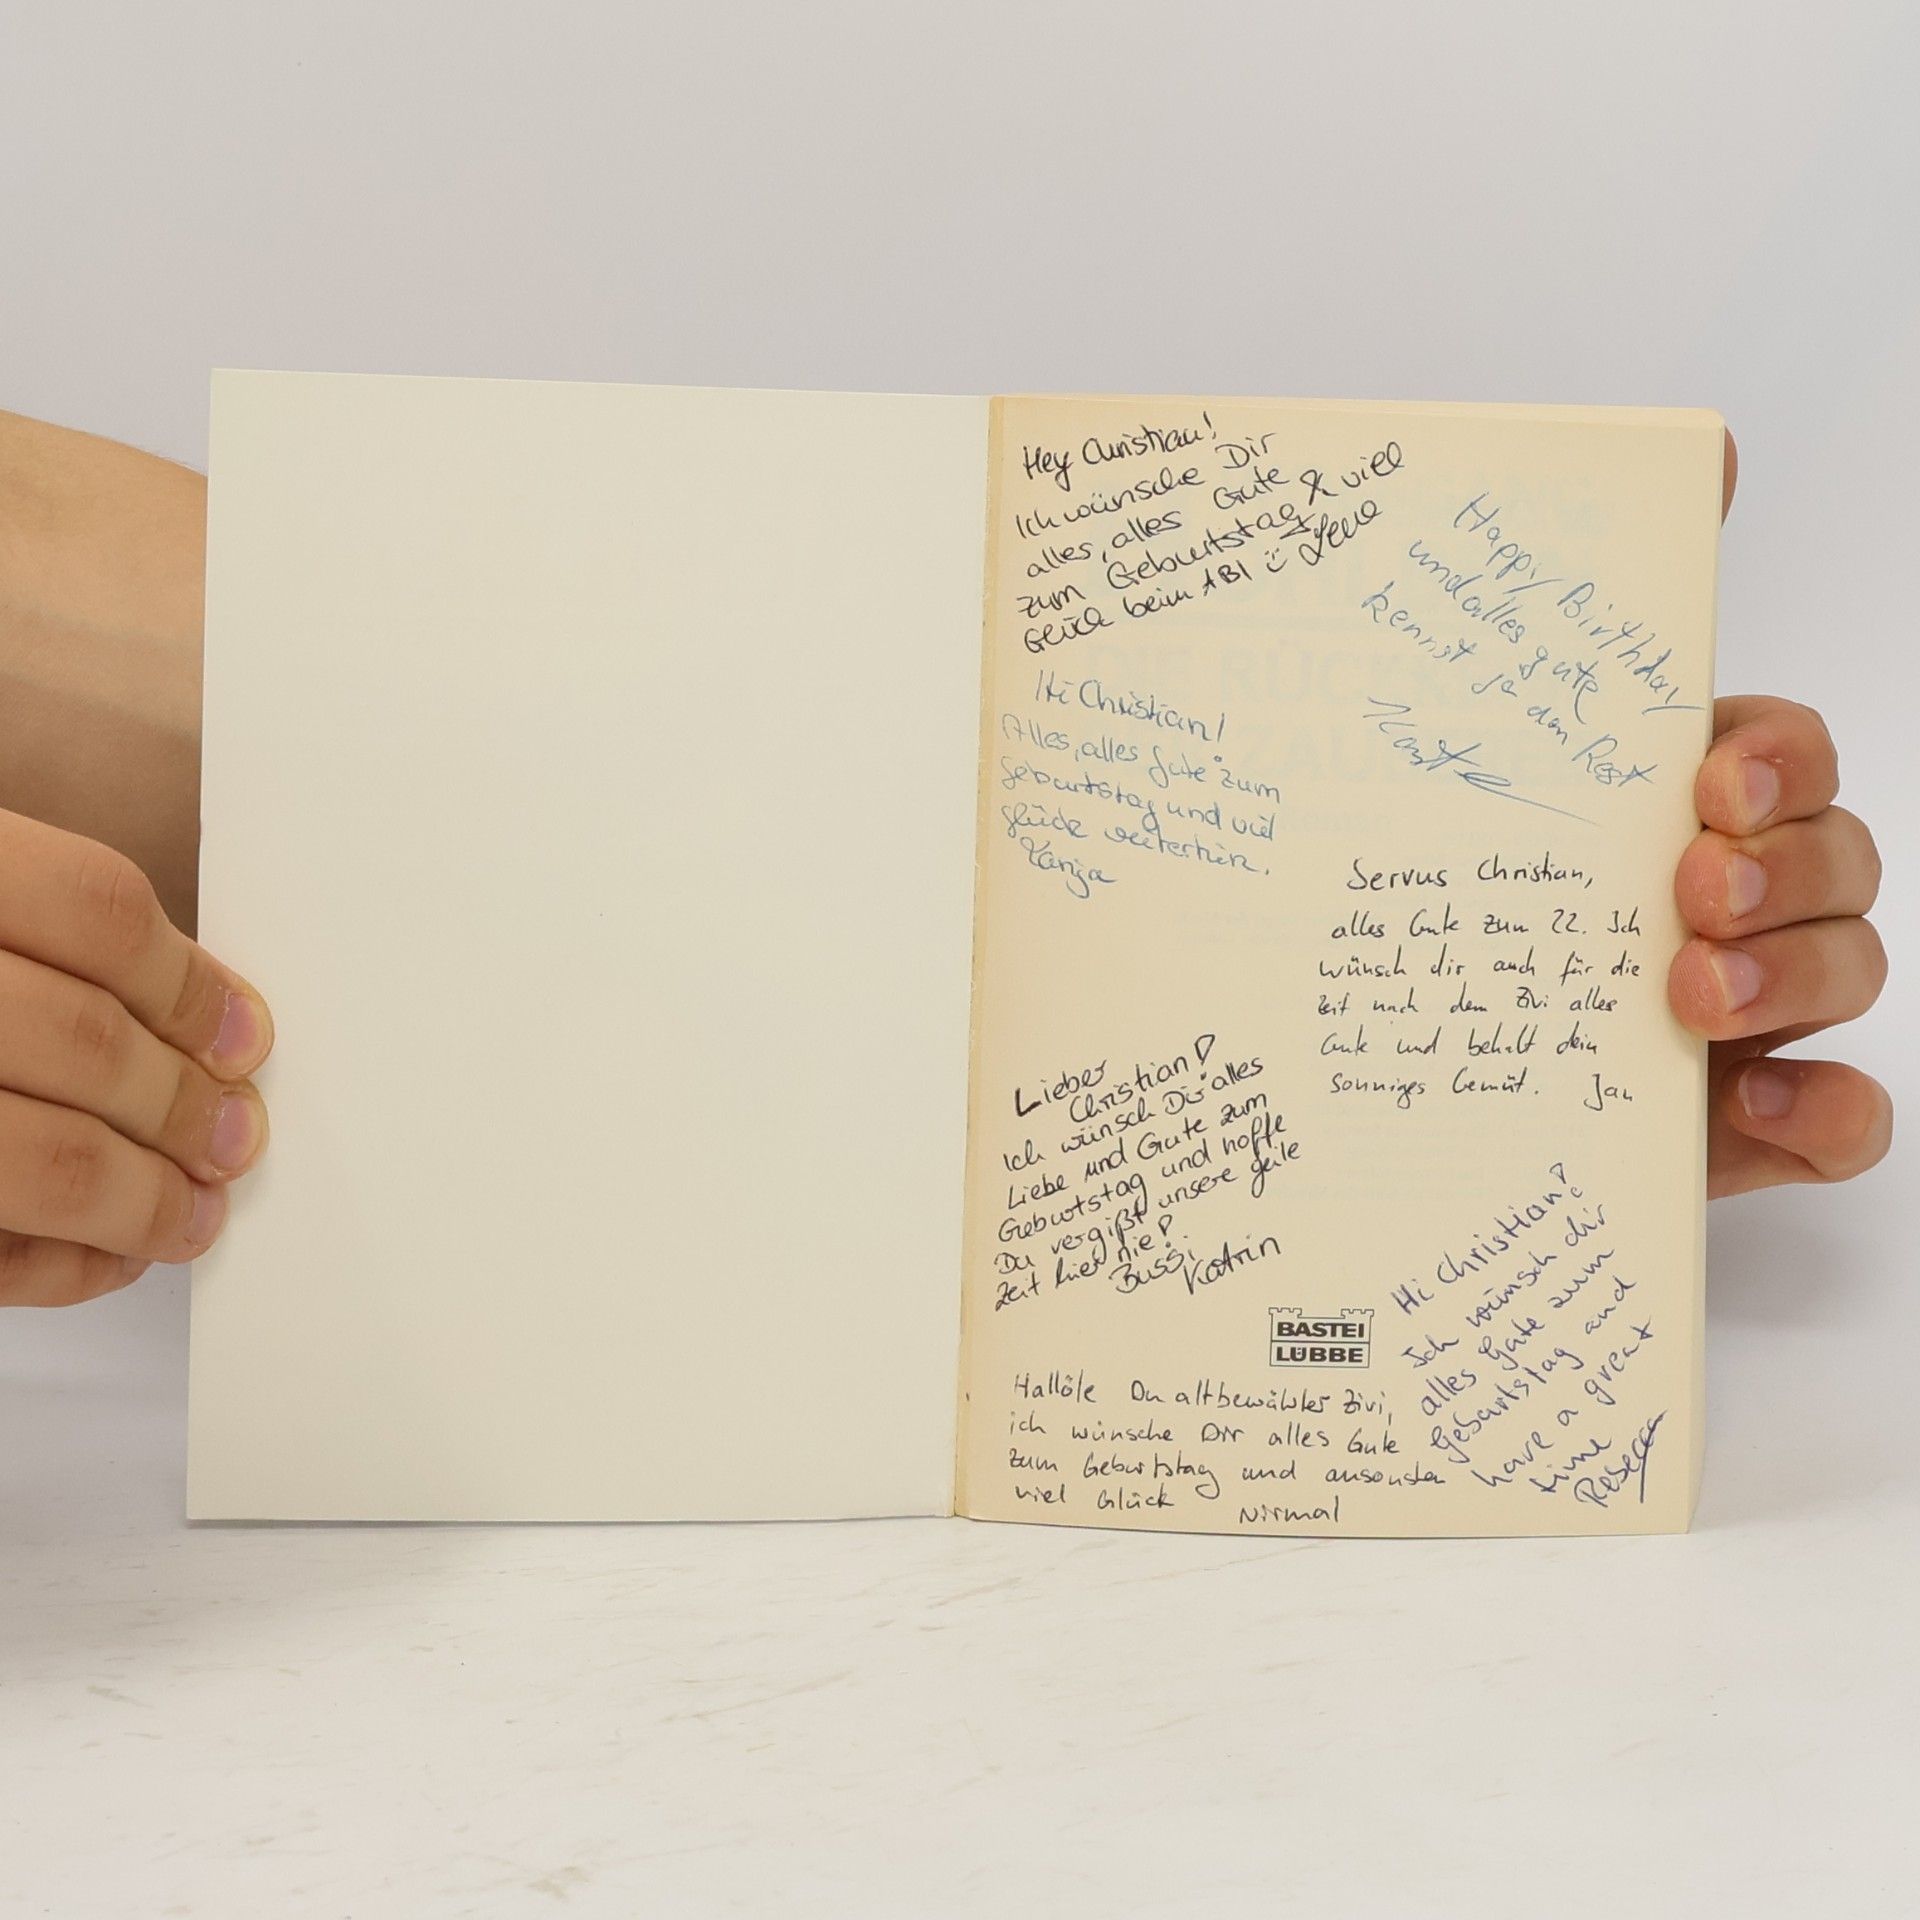 Hey Christian!
Ich wünsche Dir
alles, alles Gute
zum Geburtstag & viel
Glück beim ABI :) Lena
Happy Birthday
und alles gute
kennst ja den Rest
Hi Christian!
Alles, alles Gute zum
Geburtstag und viel
Glück weiterhin.
Tanja
Servus Christian,
alles Gute zum 22. Ich
wünsch dir auch für die
Zeit nach dem Zivi alles
Gute und behalt dein
sonniges Gemüt. Jan
Lieber
Christian!
Ich wünsch Dir alles
Liebe und Gute zum
Geburtstag und hoffe
Du vergißt unsere geile
Zeit hier nie!
Bussi
Katrin
Hi Christian!
Ich wünsch dir
alles Gute zum
Geburtstag and
have a great
time
Rebecca
BASTEI
LÜBBE
Hallöle Du altbewährter Zivi,
ich wünsche Dir alles Gute
zum Geburtstag und ansonsten
viel Glück Nirmal